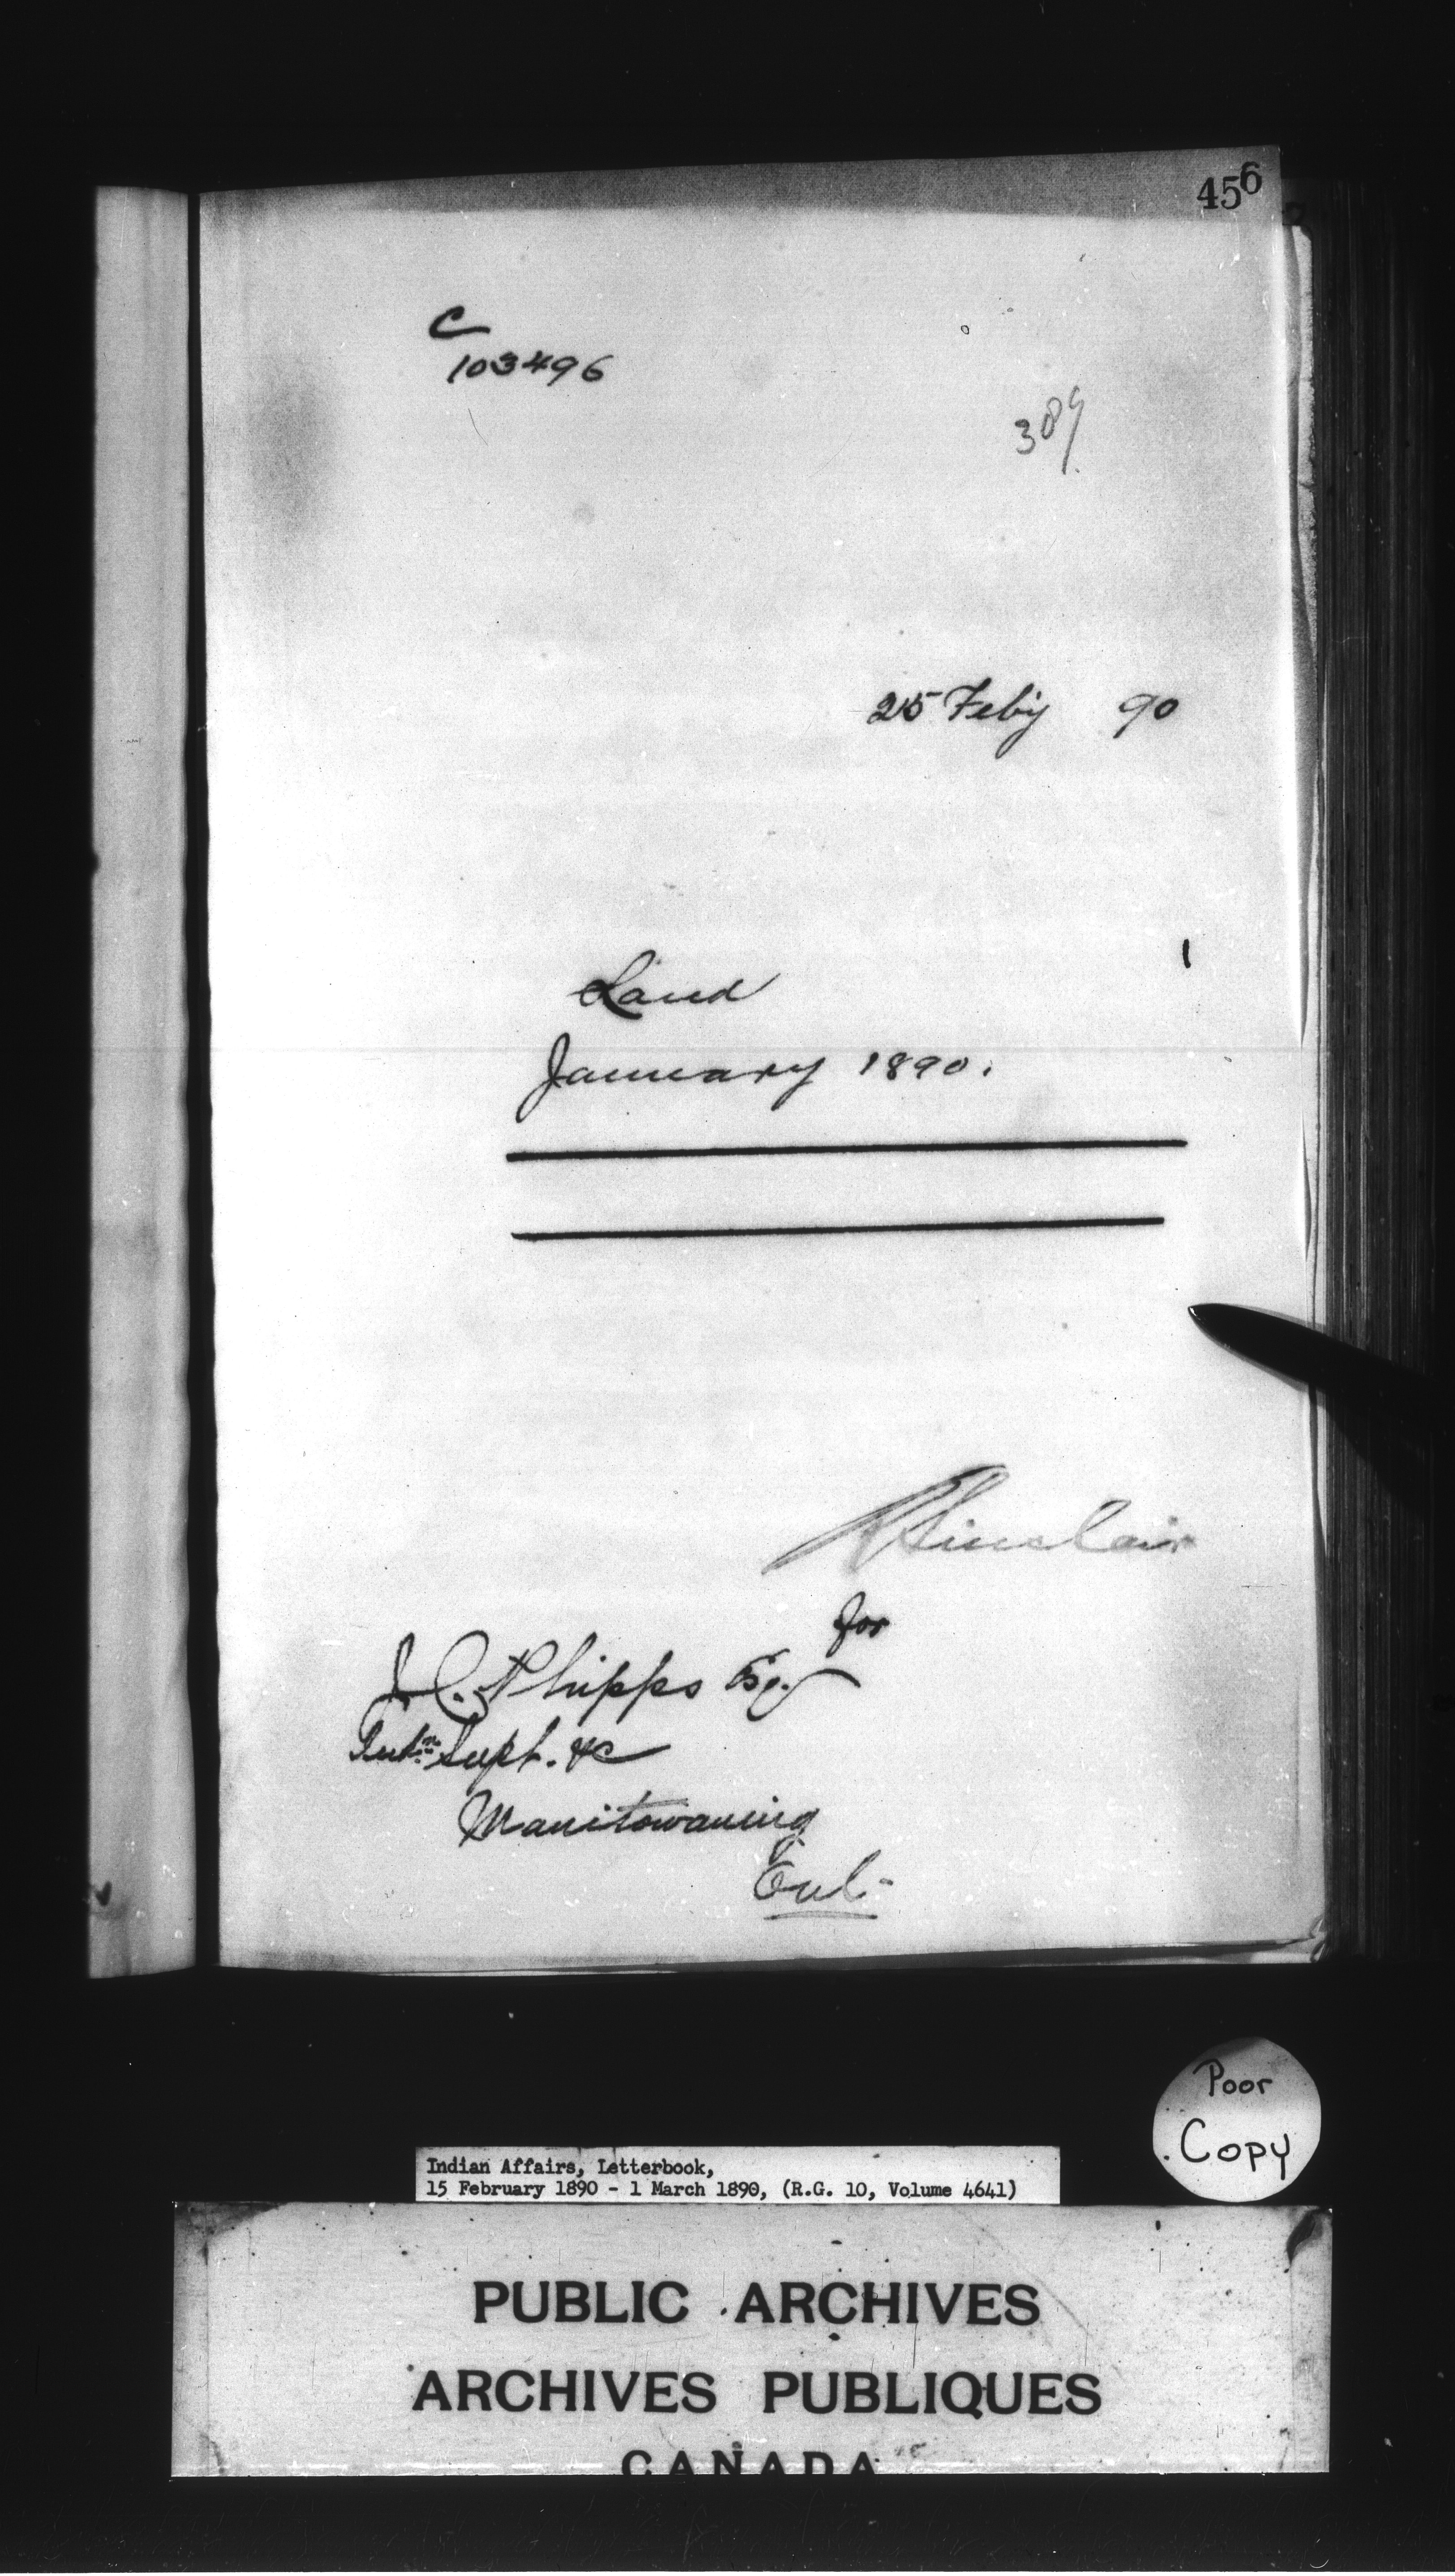 456
C
103496
389
25 Feby 90
Land
January 1890.
R Sinclair
for
J. C. Phipps Esq.
Supt. &c
Manitowaning
Ont.
Poor
Copy
Indian Affairs, Letterbook,
15 February 1890 - 1 March 1890, (R.G. 10, Volume 4641)
PUBLIC ARCHIVES
ARCHIVES PUBLIQUES
CANADA